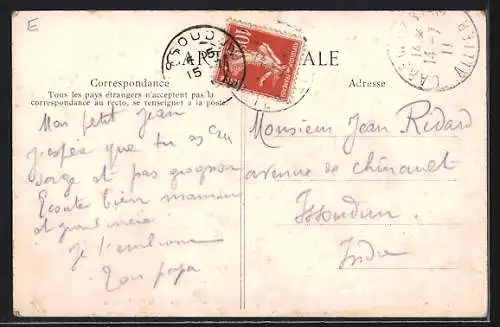 E
CARTE POSTALE
Correspondance
Tous les pays étrangers n'acceptent pas la
correspondance au recto, se renseigner à la poste
Mon petit Jean
J'espère que tu es
sage et pas grognon
Ecoute bien maman
et grand mère
Je t'embrasse
Ton papa
10
Adresse
Monsieur Jean Ridard
avenue de
Issoudun
Indre
ISSOUDUN
15
14 - 7
11
ALLIER